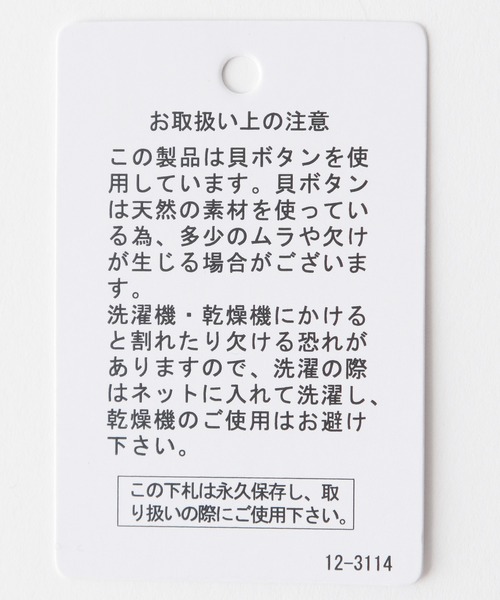 お取扱い上の注意
この製品は貝ボタンを使
用しています。貝ボタン
は天然の素材を使ってい
る為、多少のムラや欠け
が生じる場合がございま
す。
洗濯機・乾燥機にかける
と割れたり欠ける恐れが
ありますので、洗濯の際
はネットに入れて洗濯し、
乾燥機のご使用はお避け
下さい。
この下札は永久保存し、取
り扱いの際にご使用下さい。
12-3114